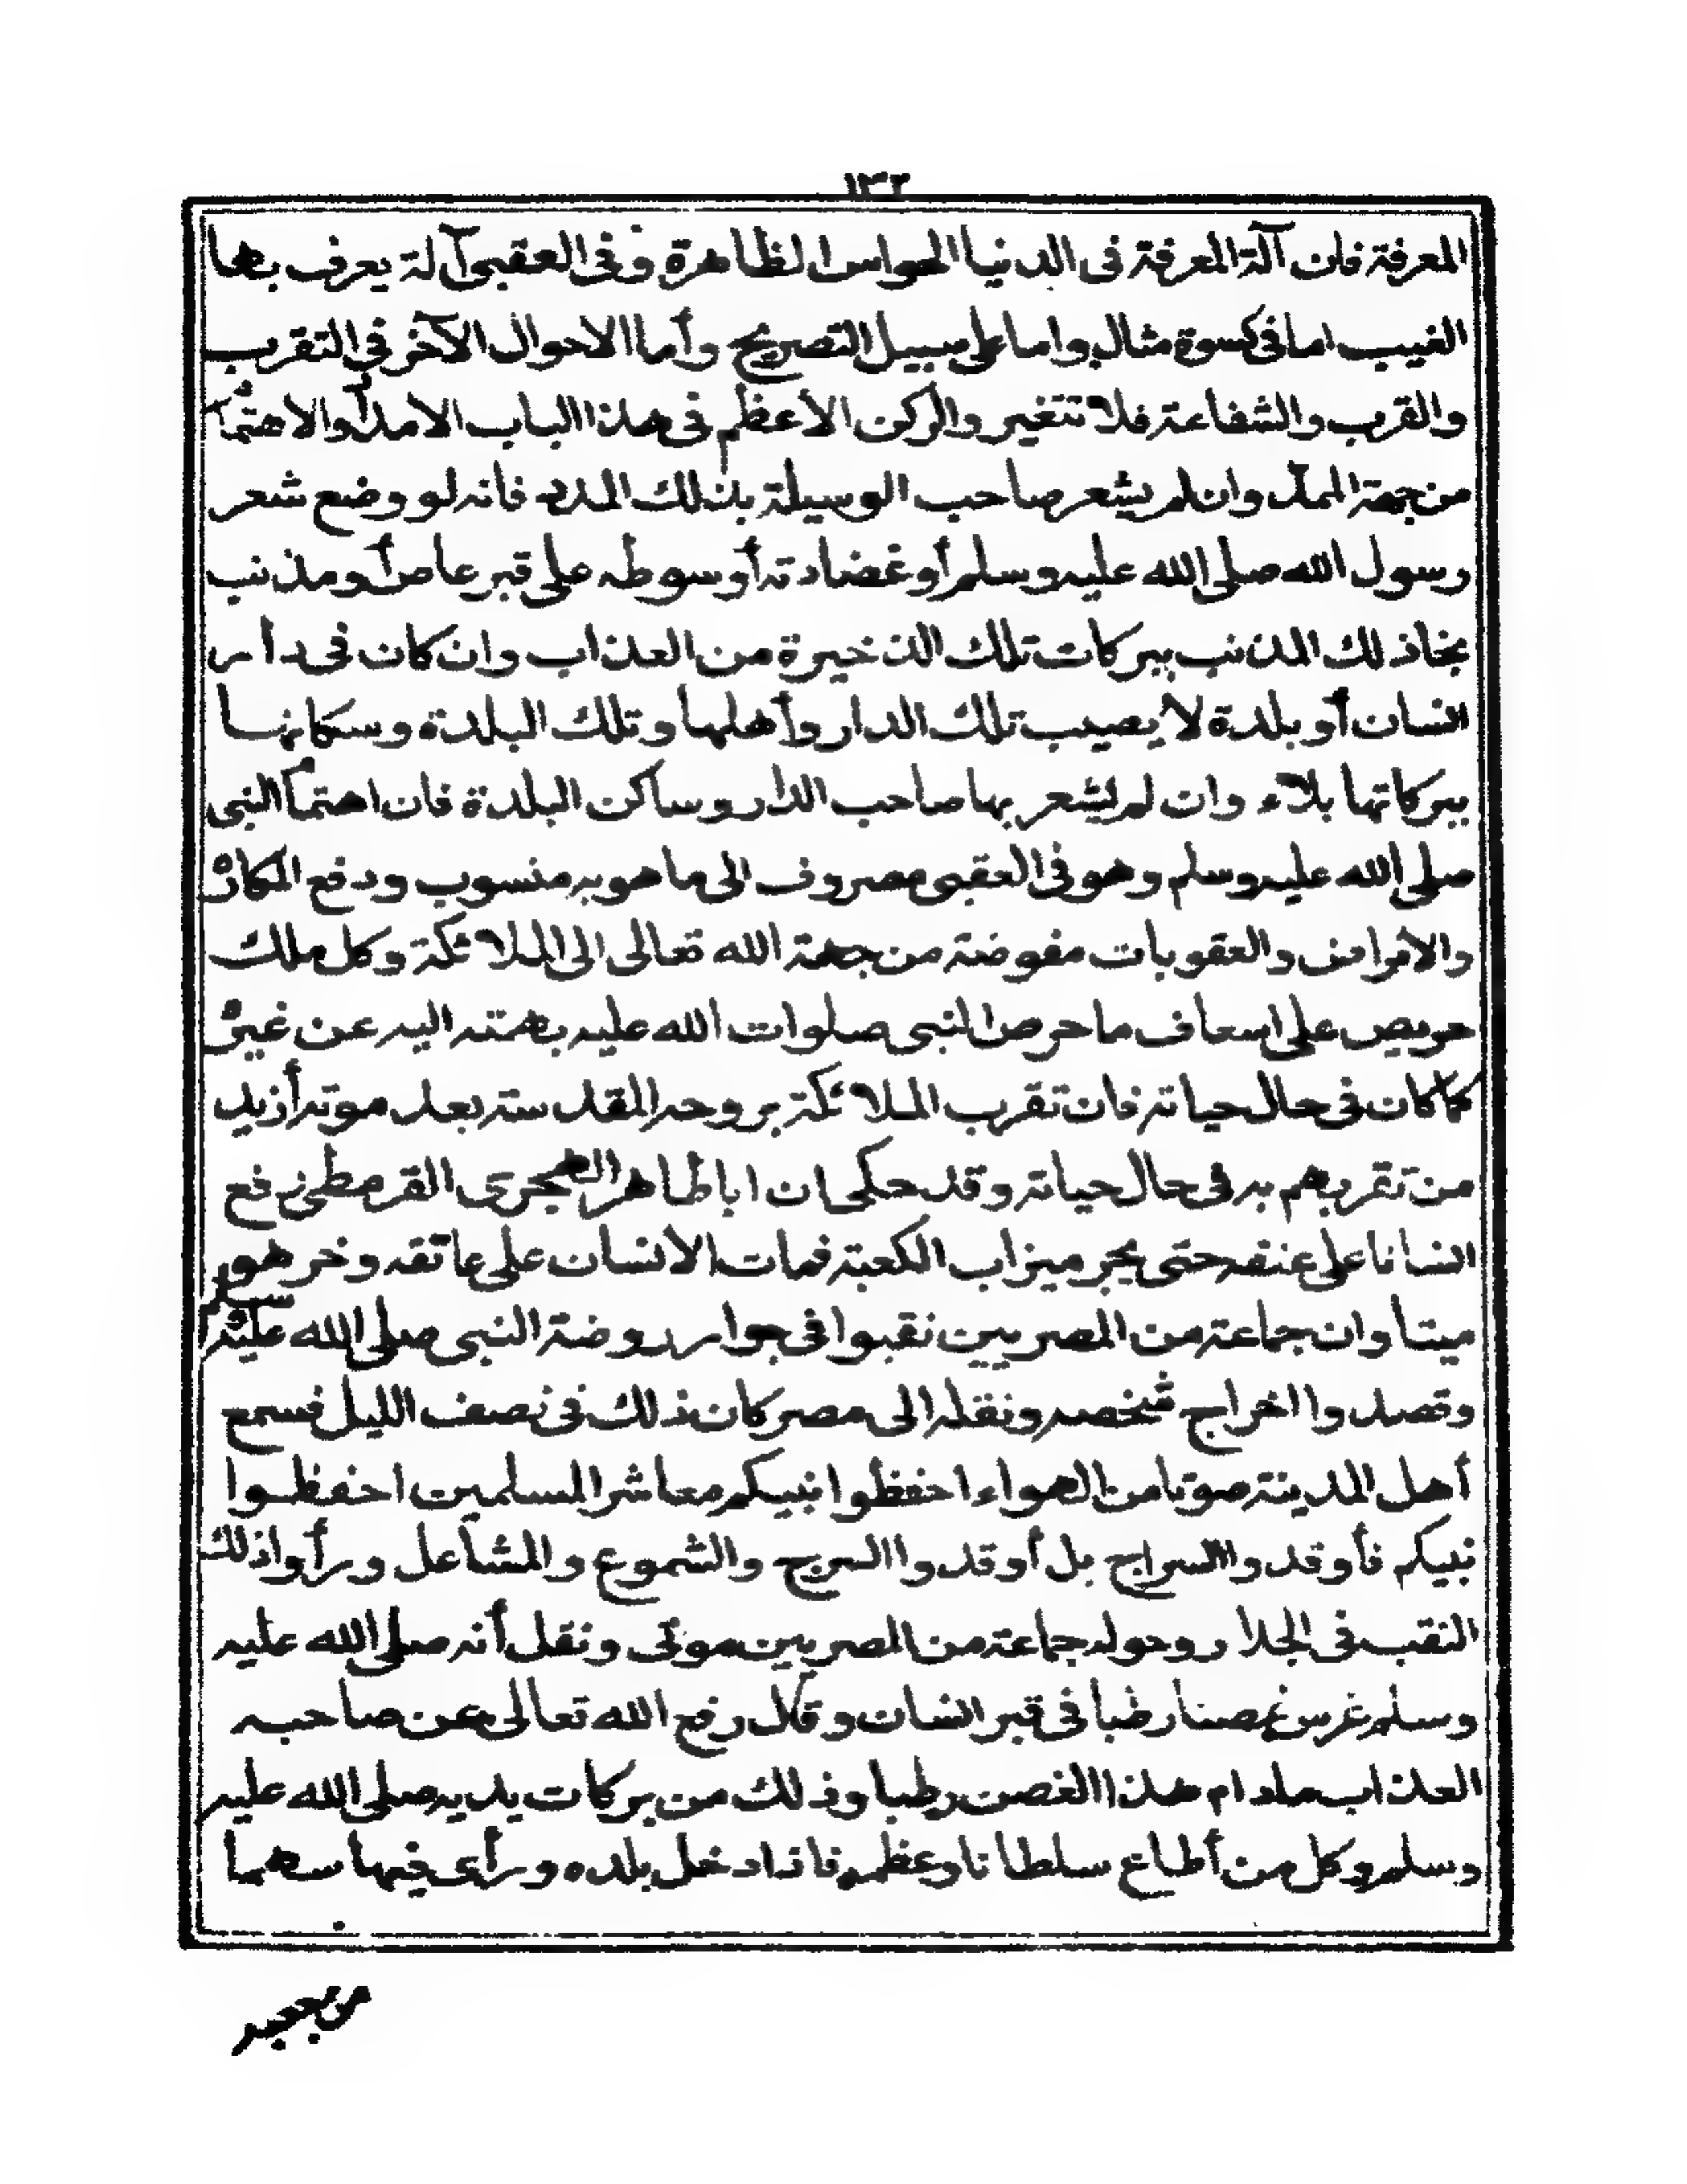 ١٣٢
المعرفة فان آلة المعرفة فى الدنيا الحواس الظاهرة وفى العقبى آلة يعرف بها
الغيب اما فى كسوة مثال واما على سبيل التصريح وأما الاحوال الآخر فى التقرب
والقرب والشفاعة فلا تتغير والركن الأعظم فى هذا الباب الامداد والاهتمام
من جهة الممد وان لم يشعر صاحب الوسيلة بذلك المدد فانه لو وضع شعر
رسول الله صلى الله عليه وسلم أو غضادته أو سوطه على قبر عاص أو مذنب
نجا ذلك المذنب ببركات تلك الذخيرة من العذاب وان كان فى دار
انسان أو بلدة لا يصيب تلك الدار وأهلها وتلك البلدة وسكانها
ببركاتها بلاء وان لم يشعر بها صاحب الدار وساكن البلدة فان اهتمام النبى
صلى الله عليه وسلم وهو فى العقبى مصروف الى ما هو به منسوب ودفع المكاره
والامراض والعقوبات مفوضة من جهة الله تعالى الى الملائكة وكل ملك
حريص على اسعاف ما حرص النبى صلوات الله عليه بهمته اليه عن غيره
كما كان فى حال حياته فان تقرب الملائكة بروحه المقدسة بعد موته أزيد
من تقربهم به فى حال حياته وقد حكى ان ابا طاهر الهجرى القرمطى رفع
انسانا على عنقه حتى يجر ميزاب الكعبة فمات الانسان على عاتقه وخر هو
ميتا وان جماعة من المصريين نقبوا فى جوار روضة النبى صلى الله عليه وسلم
وقصدوا اخراج شخصه ونقله الى مصر كان ذلك فى نصف الليل فسمع
أهل المدينة صوتا من الهواء احفظوا نبيكم معاشر المسلمين احفظوا
نبيكم فأوقدوا السراج بل أوقدوا السرج والشموع والمشاعل ورأوا ذلك
النقب فى الجدار وحوله جماعة من المصريين موتى ونقل أنه صلى الله عليه
وسلم غرس غصنا رطبا فى قبر انسان وقال رفع الله تعالى عن صاحبه
العذاب مادام هذا الغصن رطبا وذلك من بركات يديه صلى الله عليه
وسلم وكل من أطاع سلطانا وعظمه فاذا دخل بلده ورأى فيها سهما
من جعبه